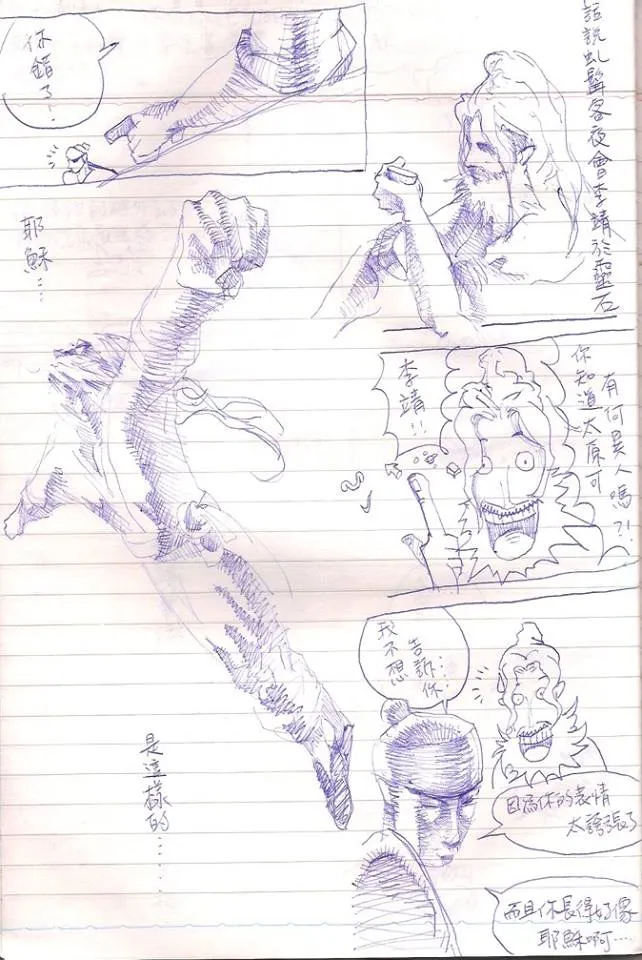 話說虬髯客夜會李靖於靈石
李靖!!
你知道太原可
有何異人嗎?!
我不想
告訴你…
因為你的表情
太誇張了
而且你長得好像
耶穌啊…
你錯了…
耶穌…
是這樣的……